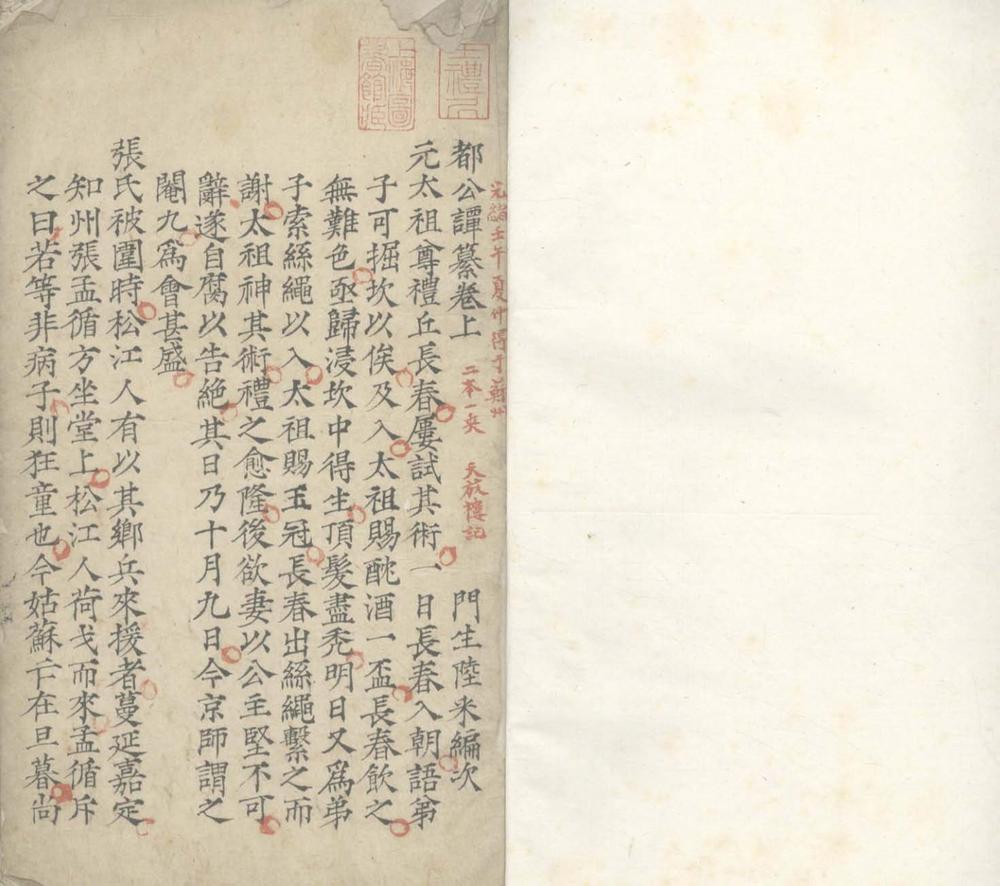 光緒壬午夏仲得于蘇州
二本一夾 天放樓記
上海圖書館藏
都公譚纂卷上 門生陸采編次
元太祖尊禮丘長春屢試其術一日長春入朝語弟
子可掘坎以俟及入太祖賜酖酒一盃長春飲之
無難色亟歸浸坎中得生頂髮盡禿明日又爲弟
子索絲繩以入太祖賜玉冠長春出絲繩繫之而
謝太祖神其術禮之愈隆後欲妻以公主堅不可
辭遂自腐以告絕其日乃十月九日今京師謂之
閹九爲會甚盛
張氏被圍時松江人有以其鄉兵來援者蔓延嘉定
知州張孟循方坐堂上松江人荷戈而來孟循斥
之曰若等非病子則狂童也今姑蘇亡在旦暮尚